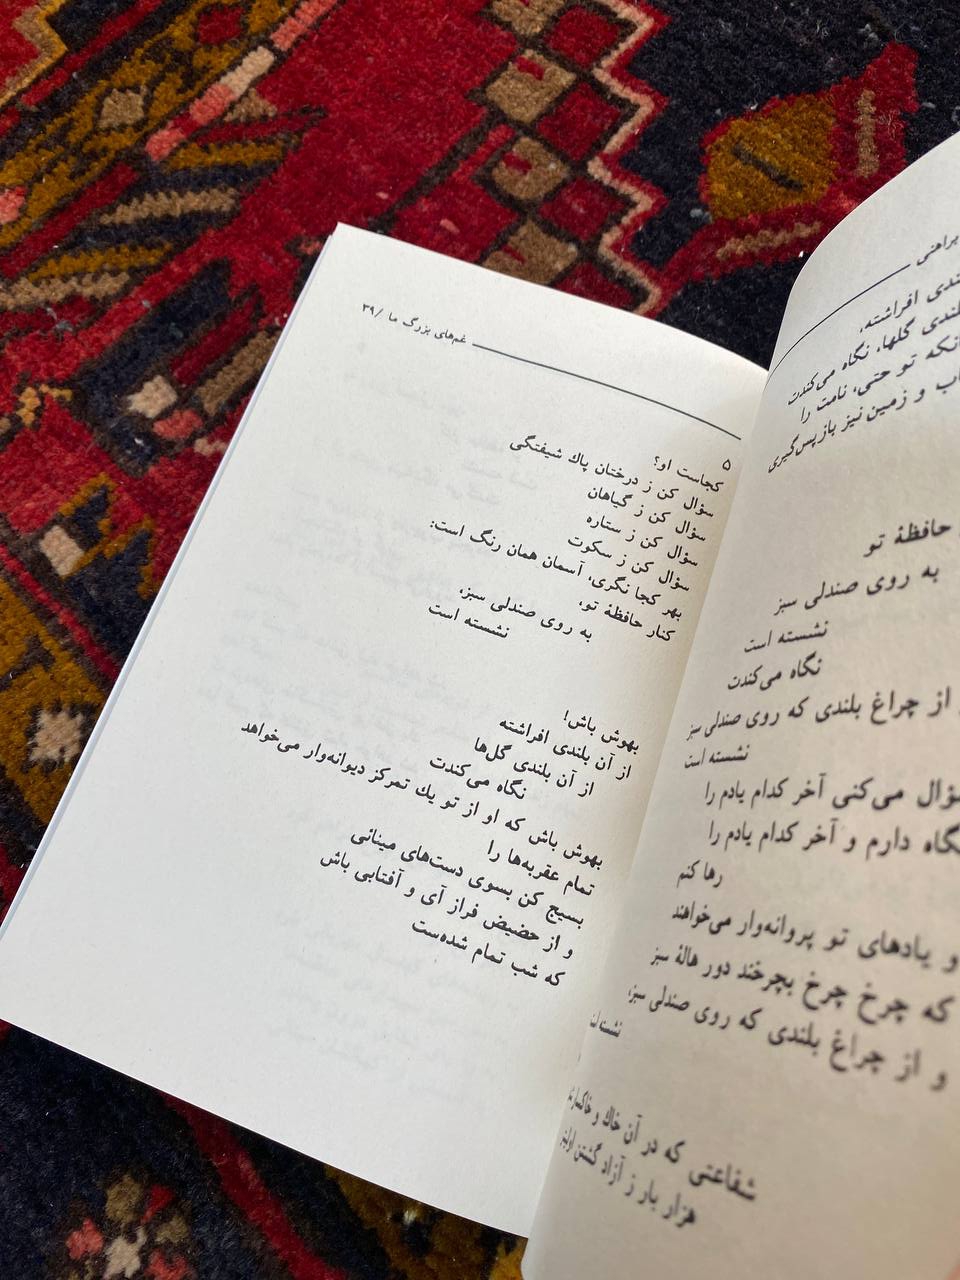 براهنی
افراشته،
بلندی گلها، نگاه می‌کندت
تو حتی، نامت را
و زمین نیز بازپس‌گیری
حافظهٔ تو
به روی صندلی سبز
نشسته است
نگاه می‌کندت
از چراغ بلندی که روی صندلی سبز
نشسته است
می‌کنی آخر کدام یادم را
دارم و آخر کدام یادم را
رها کنم
و یادهای تو پروانه‌وار می‌خواهند
که چرخ چرخ بچرخند دور هالهٔ سبز
و از چراغ بلندی که روی صندلی سبز،
نشسته
شفاعتی که در آن خاك و
هزار بار ز آزاد گشتن
غم‌های بزرگ ما /۳۹
۵
کجاست او؟
سؤال کن ز درختان پاك شیفتگی
سؤال کن ز گیاهان
سؤال کن ز ستاره
سؤال کن ز سکوت
بهر کجا نگری، آسمان همان رنگ است:
کنار حافظهٔ تو،
به روی صندلی سبز،
نشسته است
بهوش باش!
از آن بلندی افراشته
از آن بلندی گل‌ها
نگاه می‌کندت
بهوش باش که او از تو یك تمرکز دیوانه‌وار می‌خواهد
تمام عقربه‌ها را
بسیج کن بسوی دست‌های مینائی
و از حضیض فراز آی و آفتابی باش
که شب تمام شده‌ست